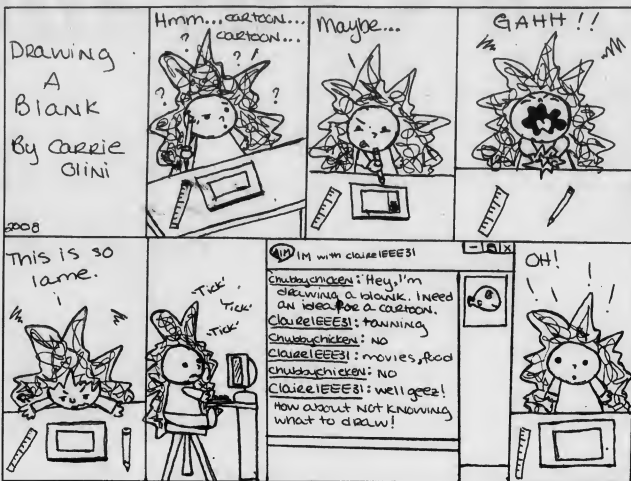 Drawing
A
Blank
By Carrie
Olini
2008
Hmm... cartoon...
cartoon...
? ? ? ?
Maybe...
GAHH!!
This is so
lame.
'Tick'
'Tick'
'Tick'
AIM IM with claire1EEE31
Chubbychicken: Hey, I'm
drawing a blank. I need
an idea for a cartoon.
Claire1EEE31: tanning
Chubbychicken: NO
Claire1EEE31: movies, food
Chubbychicken: NO
Claire1EEE31: well geez!
How about NOT KNOWING
what to draw!
OH!